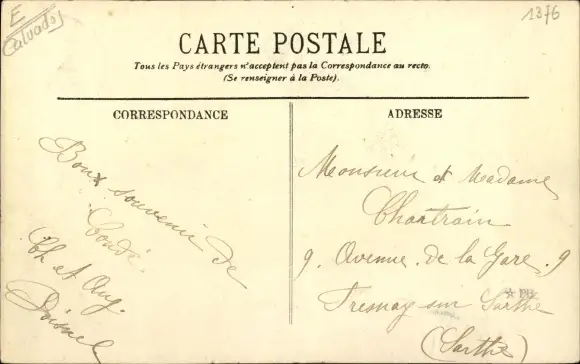 E
Calvados
1376
CARTE POSTALE
Tous les Pays étrangers n'acceptent pas la Correspondance au recto.
(Se renseigner à la Poste).
CORRESPONDANCE
Bonx souvenir de
Condé
Ch et Aug.
ADRESSE
Monsieur et Madame
Chantrain
9. Avenue de la Gare. 9
Fresnay sur Sarthe
(Sarthe)